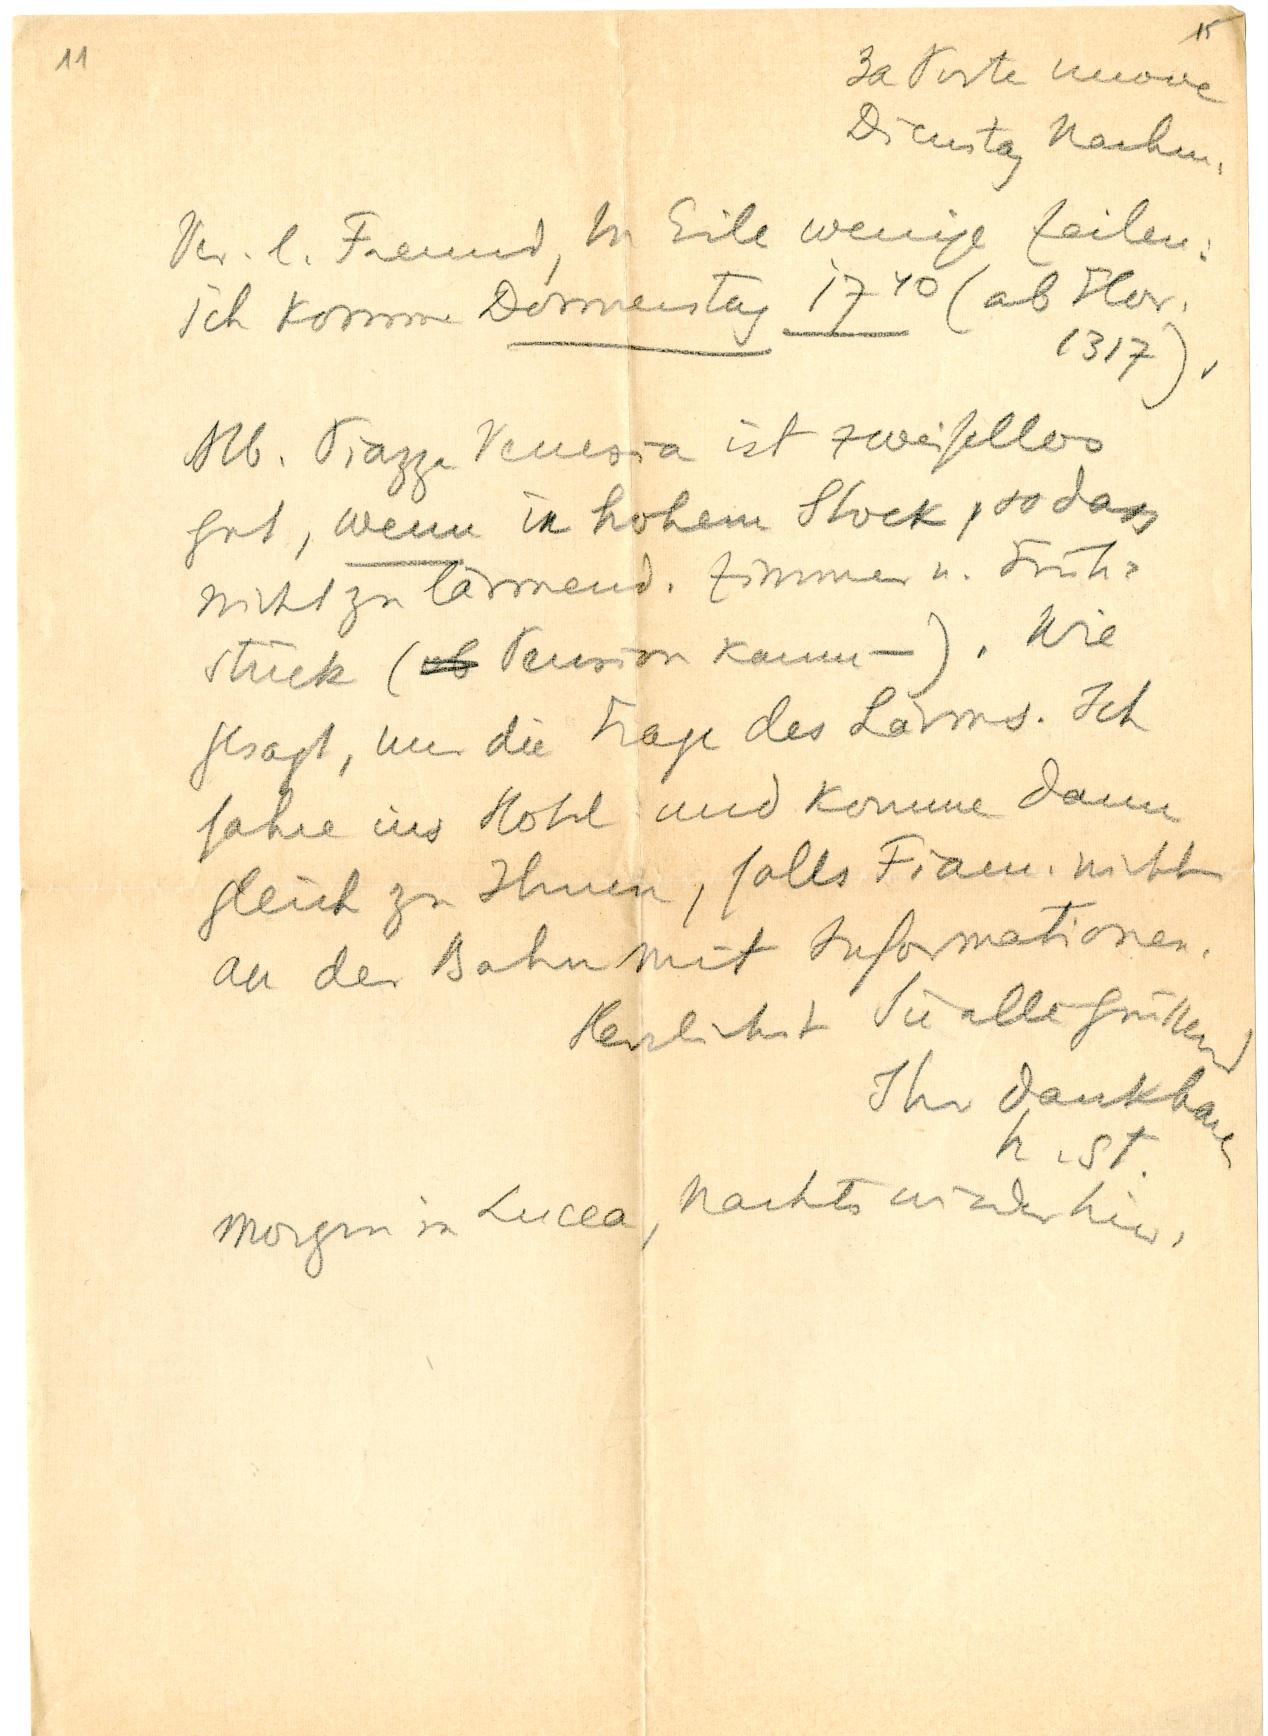 11
15
3a Porte nuove
Dienstag Nachm.
Ver. l. Freund, In Eile wenige Zeilen:
ich komme Donnerstag 17 40 (ab Flor.
1317).
Alb. Piazza Venezia ist zweifellos
gut, wenn in hohem Stock, so dass
nicht zu lärmend. Zimmer u. Früh-
stück (ab Pension kaum –). Wie
gesagt, nur die Frage des Lärms. Ich
fahre ins Hotel und komme dann
gleich zu Ihnen, falls Fiam. nicht
an der Bahn mit Informationen.
Herzlichst Sie alle grüssend
Ihr dankbarer
h. St.
Morgen in Lucca, Nachts wieder hier.